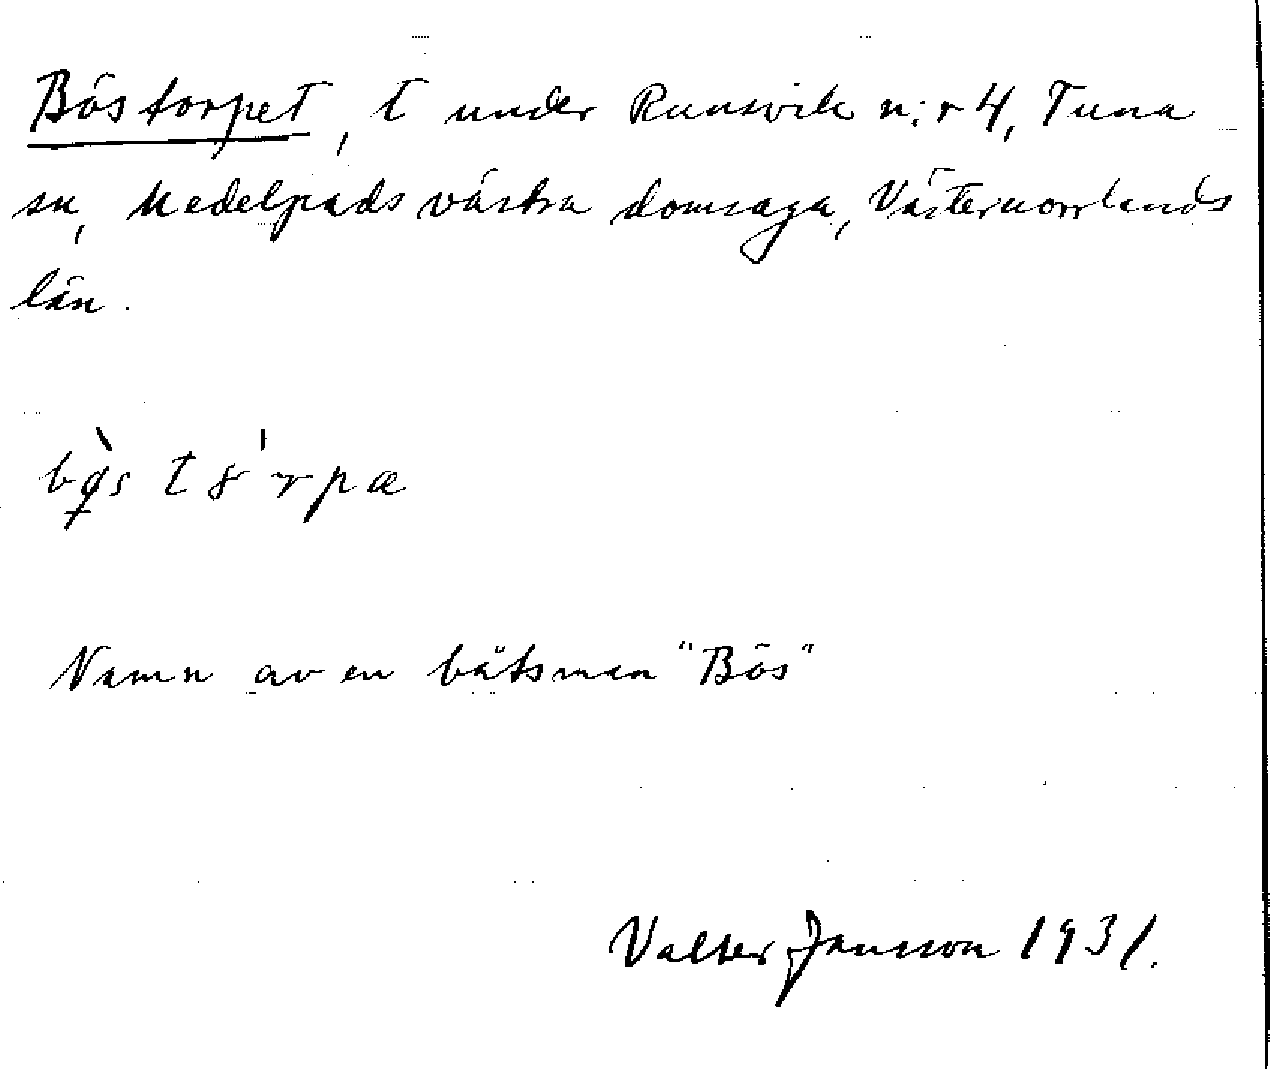 Böstorpet, t under Runsvik n:r 4, Tuna
sn, Medelpads västra domsaga, Västernorrlands
län.
Namn av en båtsman "Bös"
Valter Jansson 1931.